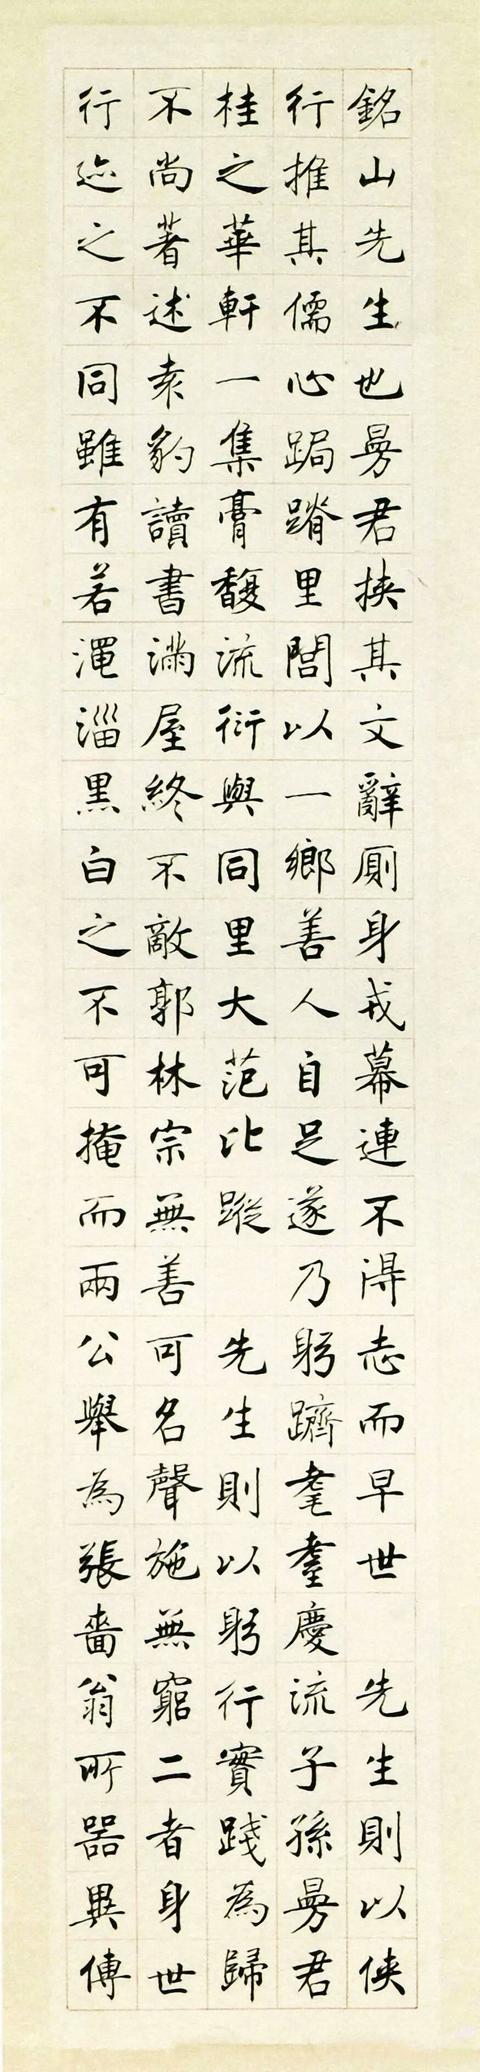 銘山先生也曼君挾其文辭廁身戎幕連不得志而早世　先生則以俠
行推其儒心跼蹐里閭以一鄉善人自足遂乃躬躋耄耋慶流子孫曼君
桂之華軒一集膏馥流衍與同里大范比蹤　先生則以躬行實踐為歸
不尚著述袁豹讀書滿屋終不敵郭林宗無善可名聲施無窮二者身世
行迹之不同雖有若澠淄黑白之不可掩而兩公舉為張嗇翁所器異傳